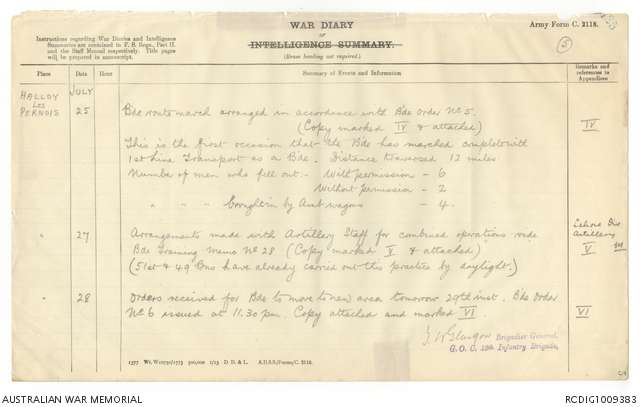 WAR DIARY
or
INTELLIGENCE SUMMARY.
(Erase heading not required.)
Army Form C. 2118.
Instructions regarding War Diaries and Intelligence
Summaries are contained in F. S. Regs., Part II.
and the Staff Manual respectively. Title pages
will be prepared in manuscript.
5
Place Date Hour Summary of Events and Information Remarks and
references to
Appendices
HALLOY
Les
PERNOIS
JULY
25 Bde route march arranged in accordance with Bde Order No 5.
(Copy marked IV & attached) IV
This is the first occasion that the Bde has marched complete with
1st Line Transport as a Bde. Distance traversed 12 miles
Number of men who fell out - With permission - 6
Without permission - 2
" " " brought in by Amb wagons - 4.
" 27 Arrangements made with Artillery Staff for combined operations vide Lahore Div
Artillery
Bde Training Memo No 28 (Copy marked V & attached) V
(51st & 49 Bns have already carried out this practice by daylight.)
" 28 Orders received for Bde to move to new area tomorrow 29th inst. Bde Order
No 6 issued at 11.30 pm. Copy attached and marked VI. VI
Glasgow Brigadier General,
G.O.C. 13th Infantry Brigade.
1577 Wt. W10791/1773 500,000 1/15 D. D. & L. A.D.S.S./Forms/C. 2118.
AUSTRALIAN WAR MEMORIAL
RCDIG1009383